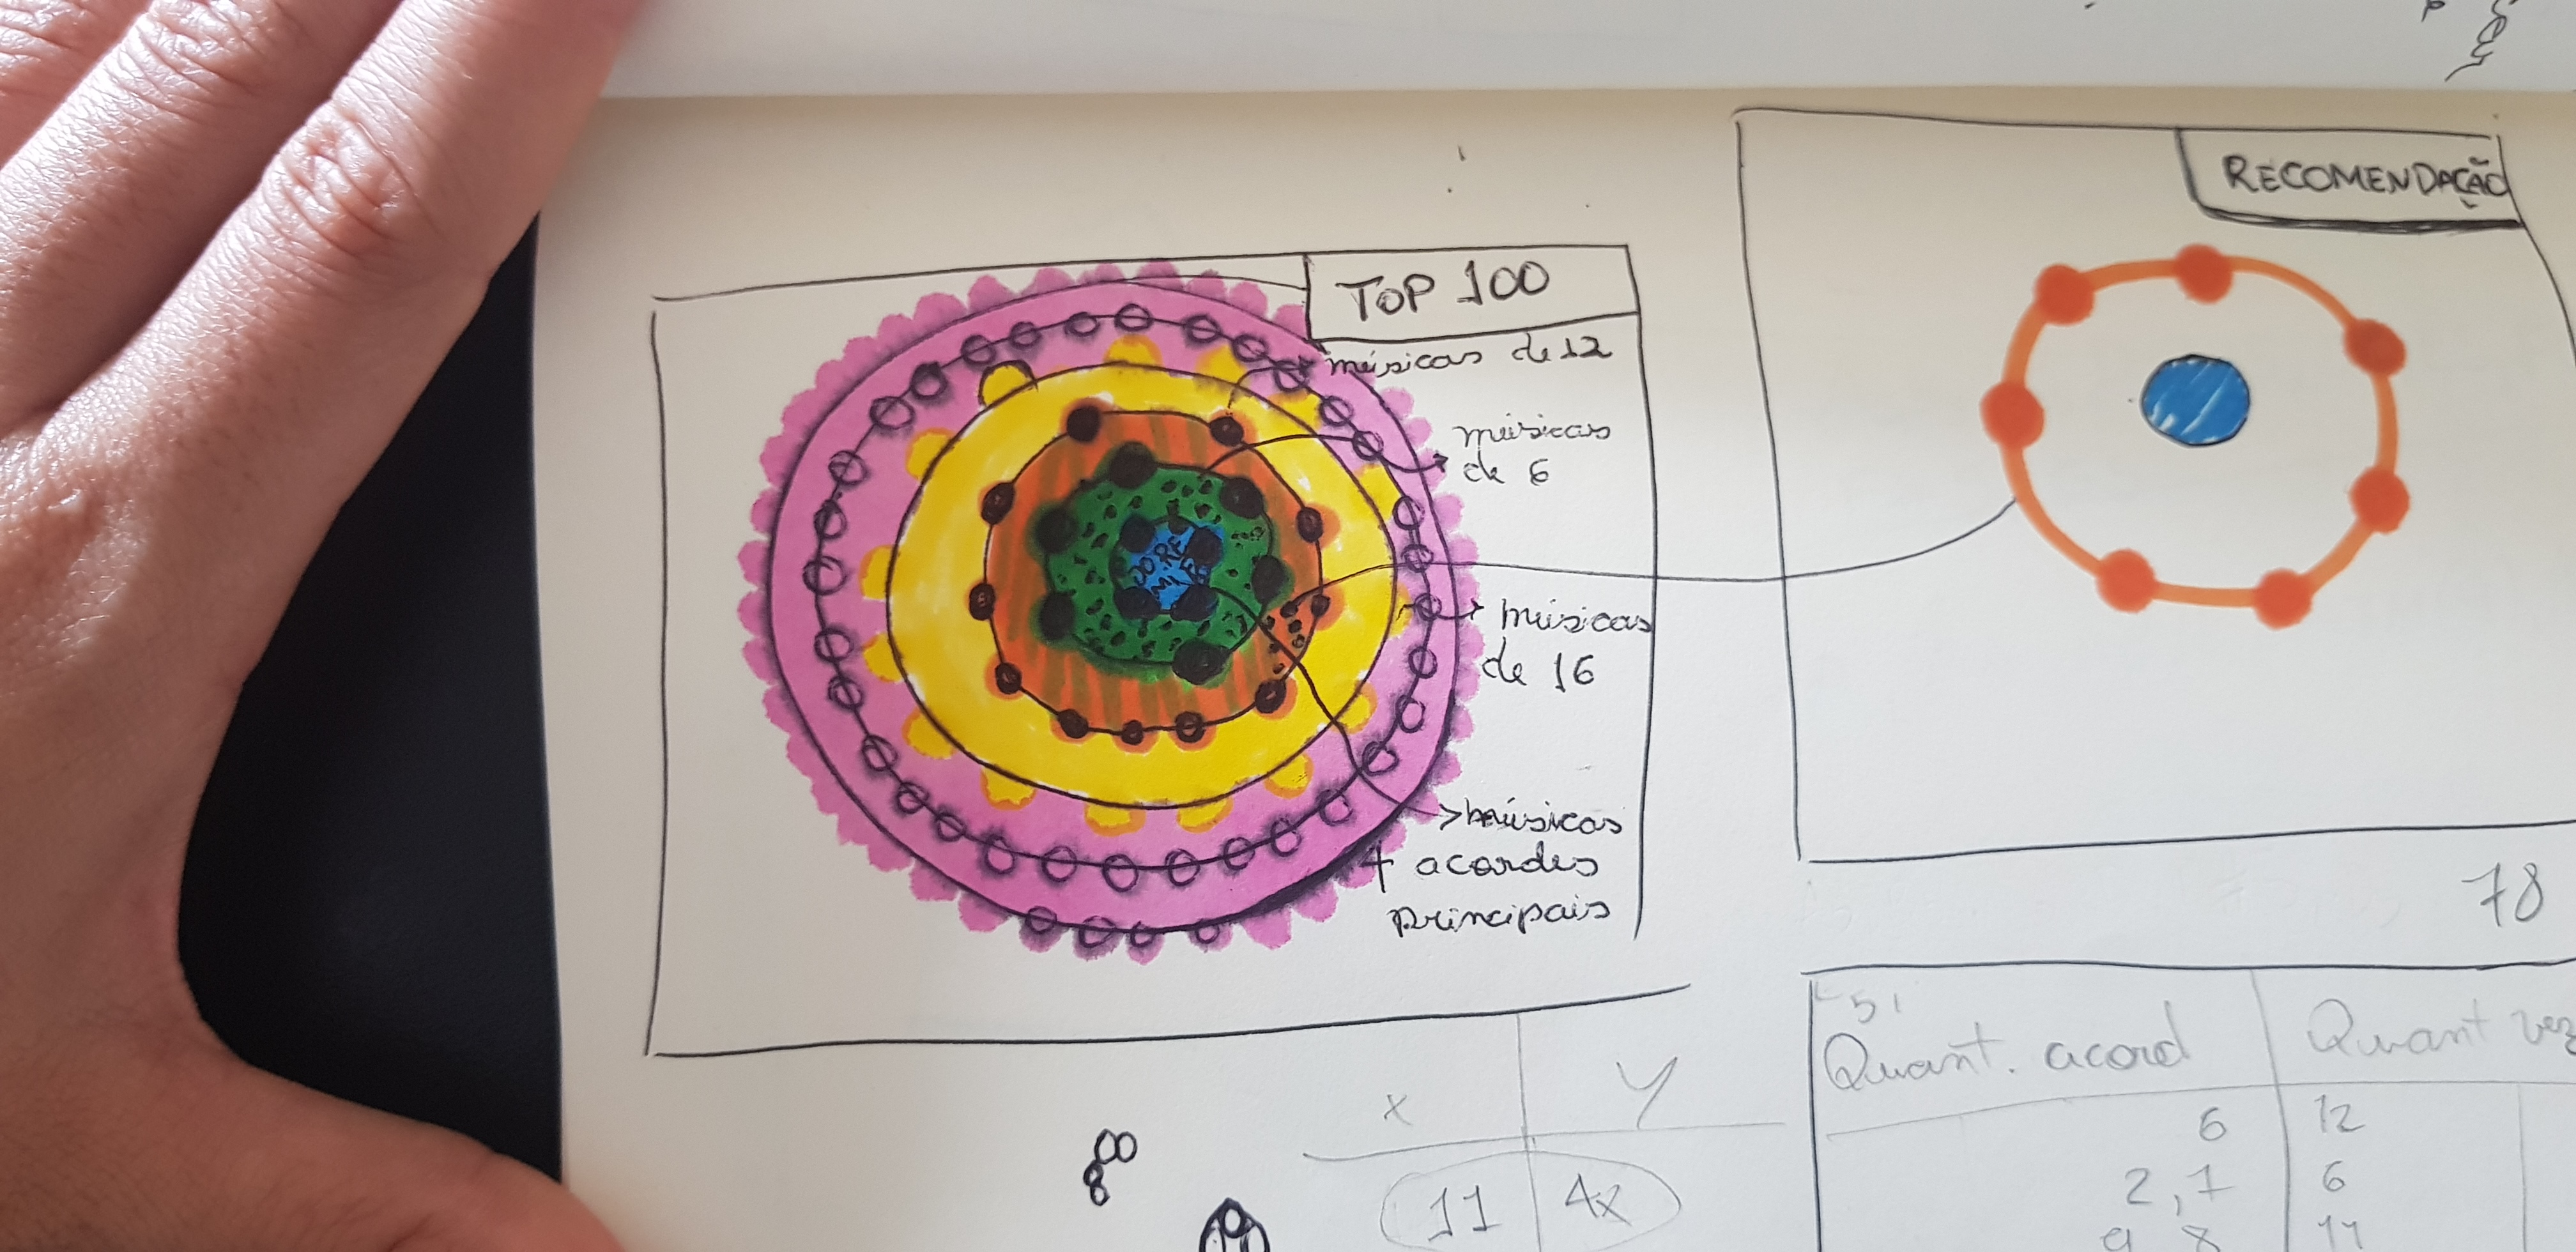 TOP 100
músicas de 12
músicas
de 6
músicas
de 16
músicas
4 acordes
principais
DO RE
MI
RECOMENDAÇÃO
78
x Y
11 4x
Quant. acord Quant vez
6 12
2, 7 6
9 8 11